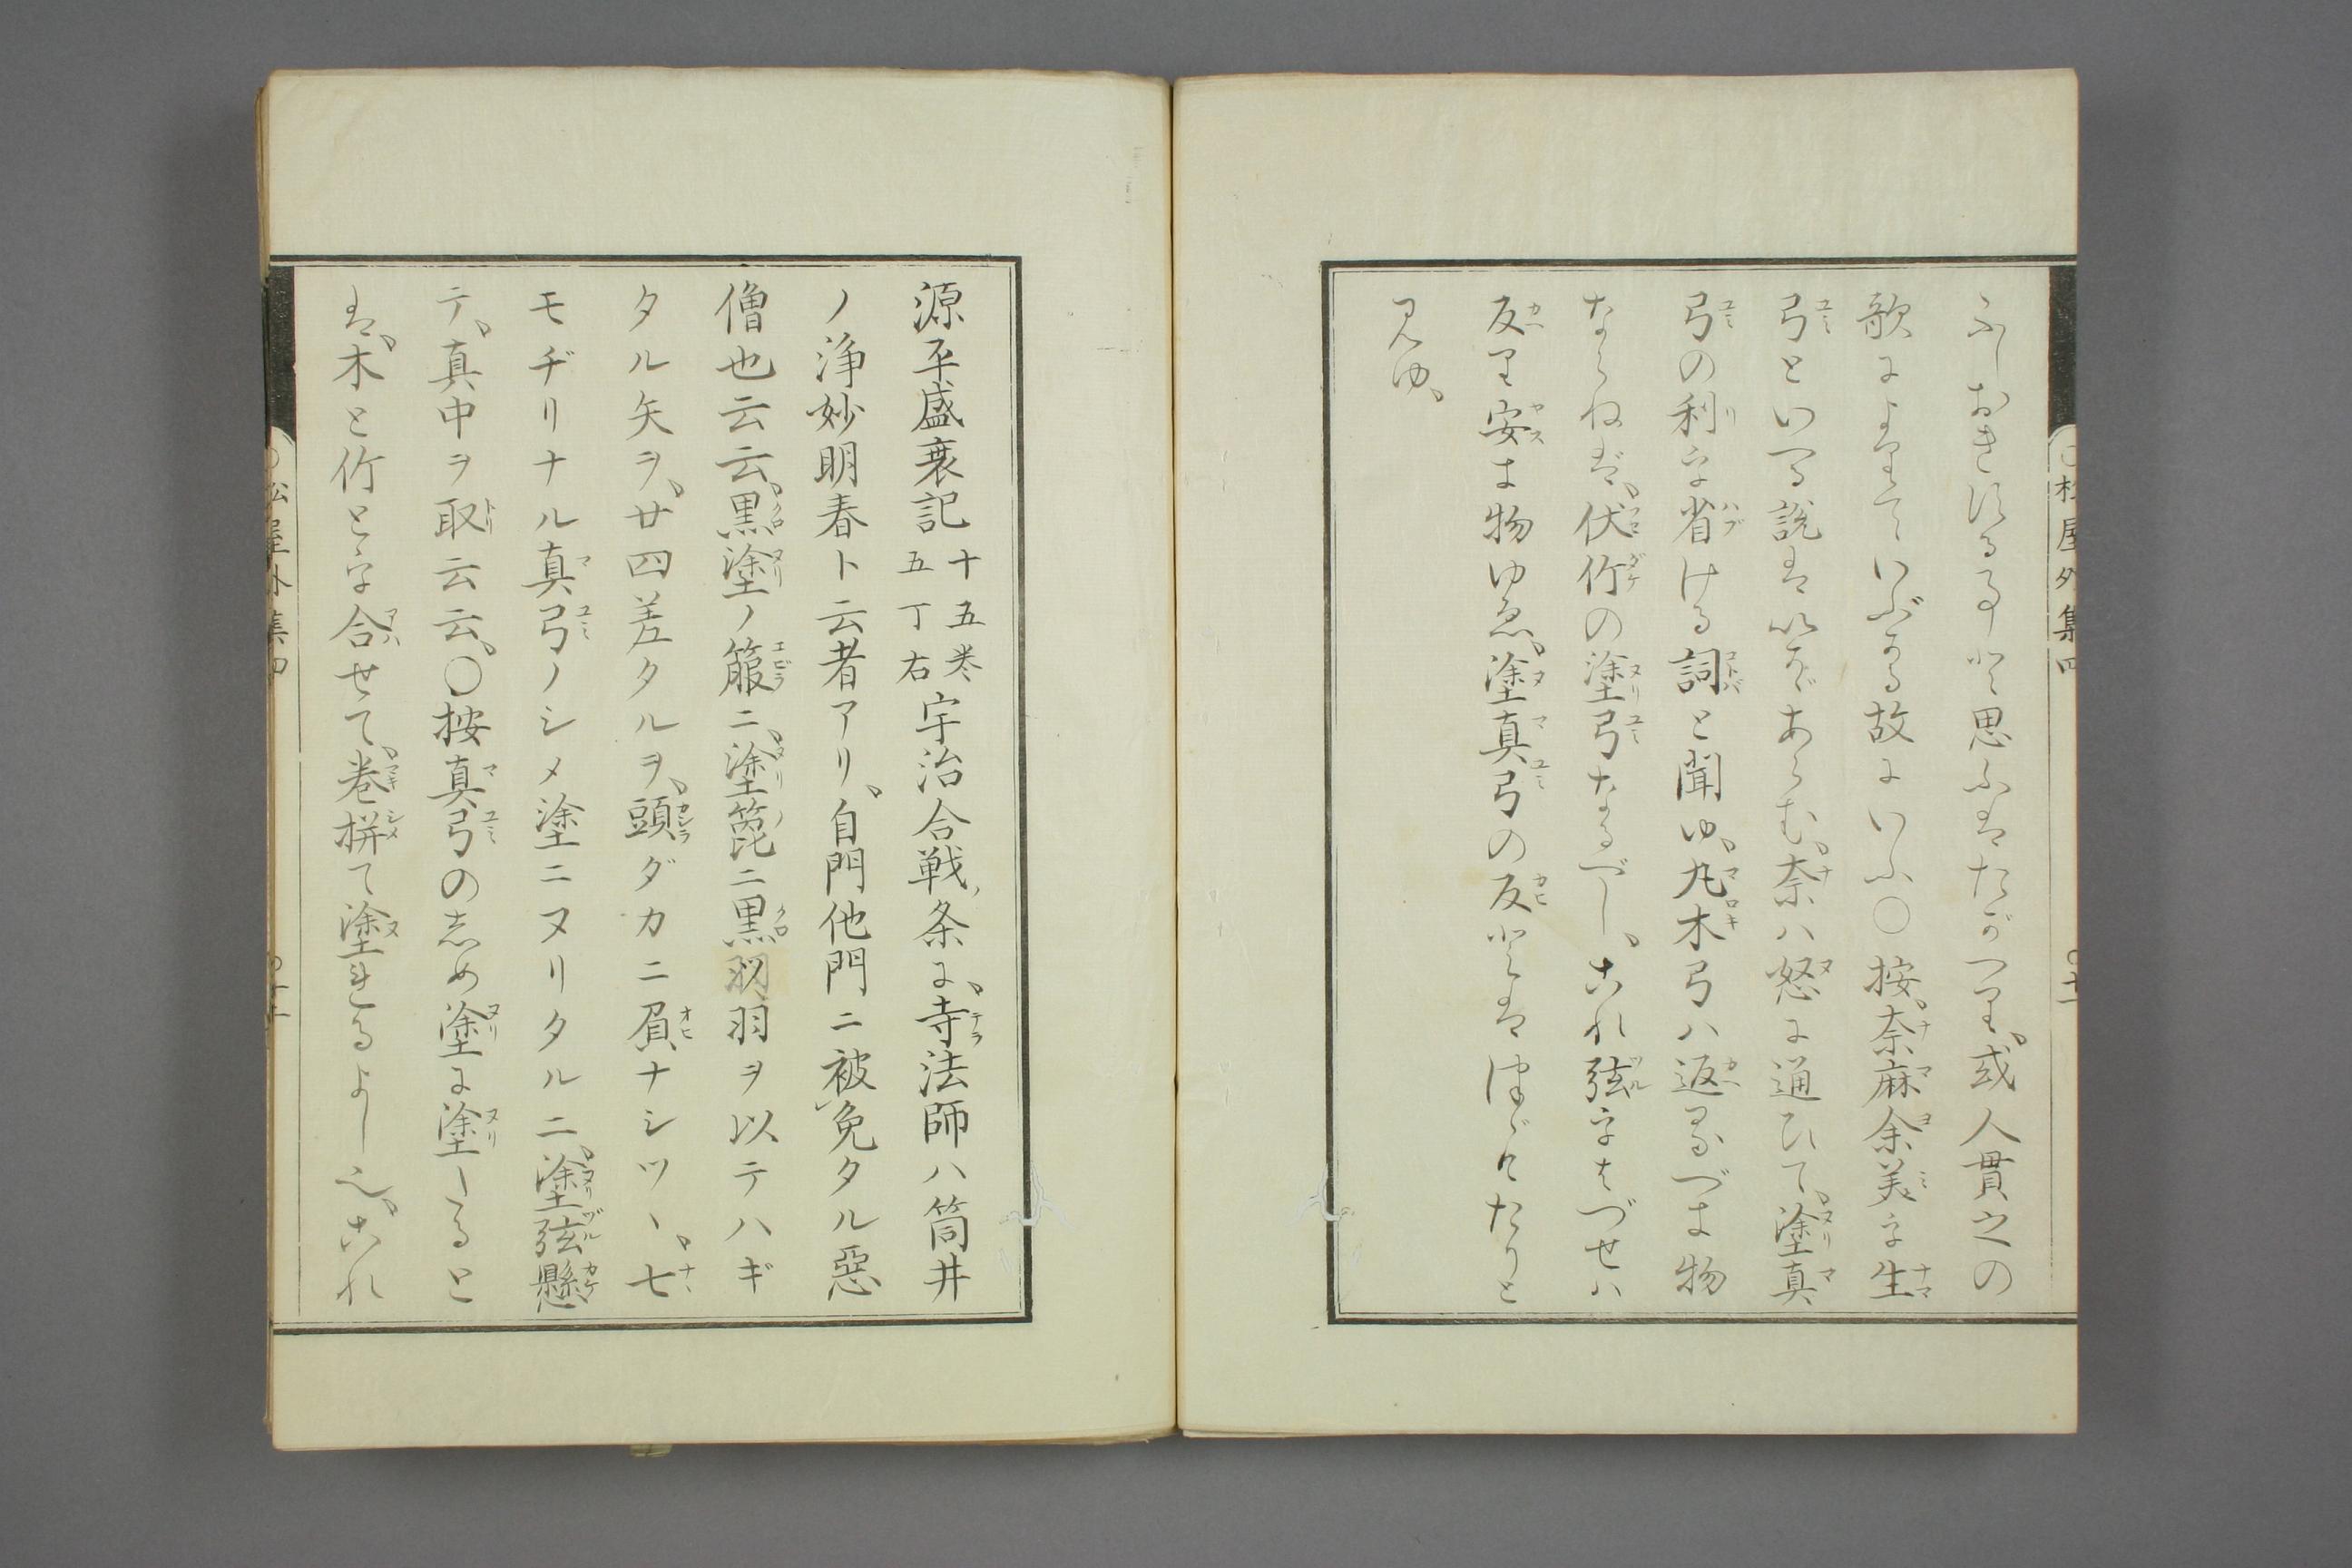 ふしおきぬる事と思ふはたがへり、或人貫之の
歌によりていぶかる故にいふ〇按、奈麻余美を生
弓といへる説はいかゞあらむ、奈ハ怒に通ひて、塗真
弓の利を省ける詞と聞ゆ、丸木弓ハ返るべき物
ならねば、伏竹の塗弓なるべし、これ弦をはづせハ
反り安き物ゆゑ、塗真弓の反とはつゞけたりと
見ゆ、
源平盛衰記十五巻五丁右宇治合戦ノ条に、寺法師ハ筒井
ノ浄妙明春ト云者アリ、自門他門ニ被免タル惡
僧也云云、黒塗ノ箙ニ、塗箆ニ黒羽ヲ以テハギ
タル矢ヲ、廿四差タルヲ、頭ダカニ負ナシツヽ、七
モヂリナル真弓ノシメ塗ニヌリタルニ、塗弦懸
テ、真中ヲ取云云、〇按真弓の志め塗に塗しると
は、木と竹とを合せて、巻拼て塗れるよし也、これ
松屋外集四